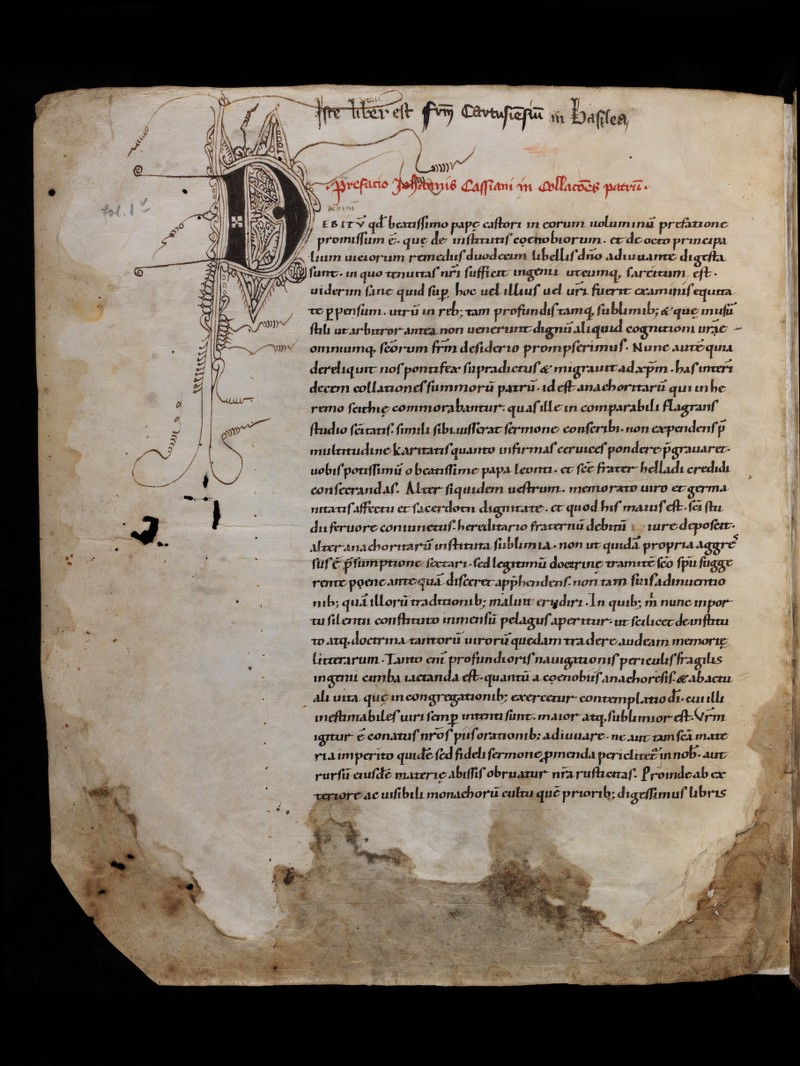 Iste liber est frm̄ Cartusiēsiū in Basilea
fol. 1v
Prefacio Johannis Cassiani in Collacōes patrū.
DEBITV̄ qd̄ beatissimo papę castori in eorum uoluminū prefatione
promissum ē. quę de institutis coenobiorum. et de octo principa
lium uiciorum remediis duodecim libellis dn̄o adiuuante digesta
sunt. in quo tenuitas nr̄i sufficit ingenii utcumq; sarcitum est.
uiderim sane quid sup̱ hoc uel illius uel ur̄i fuerit examinis equita
te p̱pensum. utrū in reb; tam profundis tamq; sublimib; & quę inusū
stili ut arbitror antea non uenerunt dignū aliquid cognitioni ur̄ae
omniumq; sc̄orum fr̄m desiderio prompserimus. Nunc autē quia
dereliquit nos pontifex supradictus & migrauit ad xp̄m. has interī
decem collationes summorū patrū. id est anachoritarū qui in he
remo scithię commorabantur. quas ille in comparabili flagrans
studio sc̄itatis. simili sibi iusserat sermone conscribi. non expendens p̄
multitudine karitatis quanto infirmas ceruices pondere p̄grauaret.
uobis potissimū o beatissime papa leonti. et sc̄e frater helladi credidi
consecrandas. Alter siquidem uestrum. memorato uiro et germa
nitatis affectu et sacerdotii dignitate. et quod his maius est. sc̄i stu
dii feruore coniunctus. hereditario fraternū debitū iure deposcit.
Alter anachoritarū instituta sublimia. non ut quidā propria aggres
sus ē p̄sumptione sectari. sed legitimū doctrinę tramitē sc̄o sp̄u sugge
rente poene ante quā disceret app̄hendens. non tam suis adinuentio
nib; quā illorū traditionib; maluit erudiri. In quib; m̄ nunc in por
tu silentii constituto inmensū pelagus aperitur. ut scilicet de institu
to atq; doctrina tantorū uirorū quedam tradere audeam memorię
litterarum. Tanto eni̅ profundioris nauigationis periculis fragilis
ingenii cimba iactanda est. quantū a coenobiis anachoresis. & ab actu
ali uita quę in congregationib; exercetur contemplatio dī. cui illi
inestimabiles uiri semp̱ intenti sunt. maior atq; sublimior est. Vr̄m
igitur ē conatus nr̄os piis orationib; adiuuare. ne aut tam sc̄a mate
ria imperito quidē sed fideli sermone p̱menda periclitet̄ in nob̄. aut
rursū eiusdē materię abissis obruatur nr̄a rusticitas. Proinde ab ex
teriore ac uisibili monachorū cultu quē priorib; digessimus libris